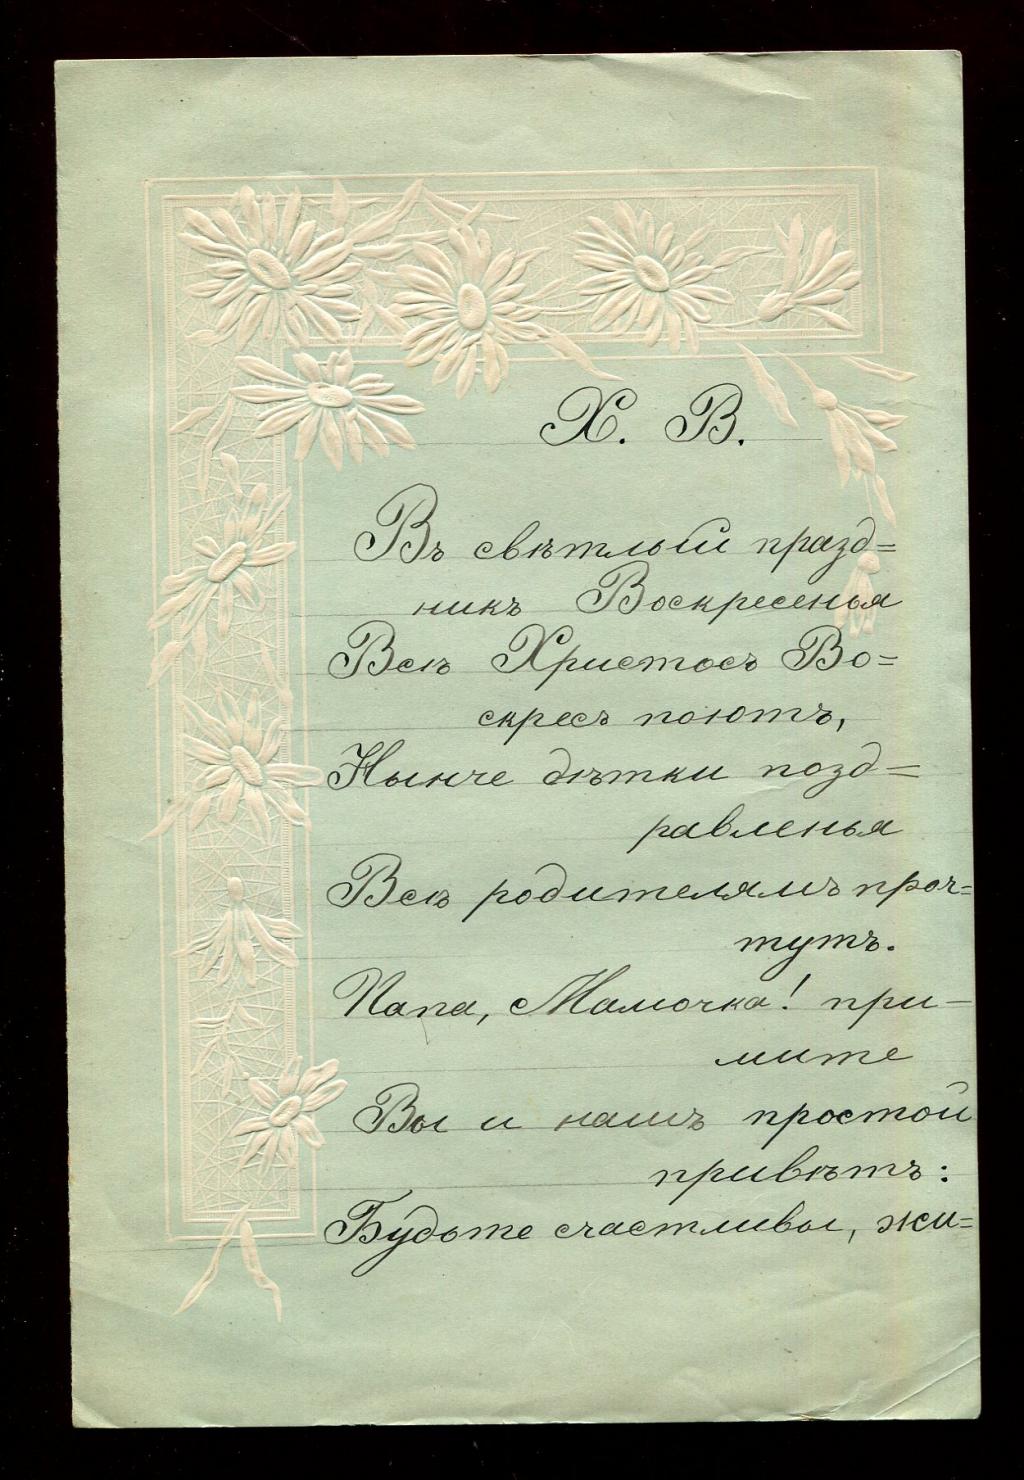 Х. В.
Въ свѣтлый празд=
никъ Воскресенья
Всѣ Христосъ Во=
скресъ поютъ,
Нынче дѣтки позд=
равленья
Всѣ родителямъ проч=
тутъ.
Папа, Мамочка! при-
мите
Вы и нашъ простой
привѣтъ:
Будьте счастливы, жи=